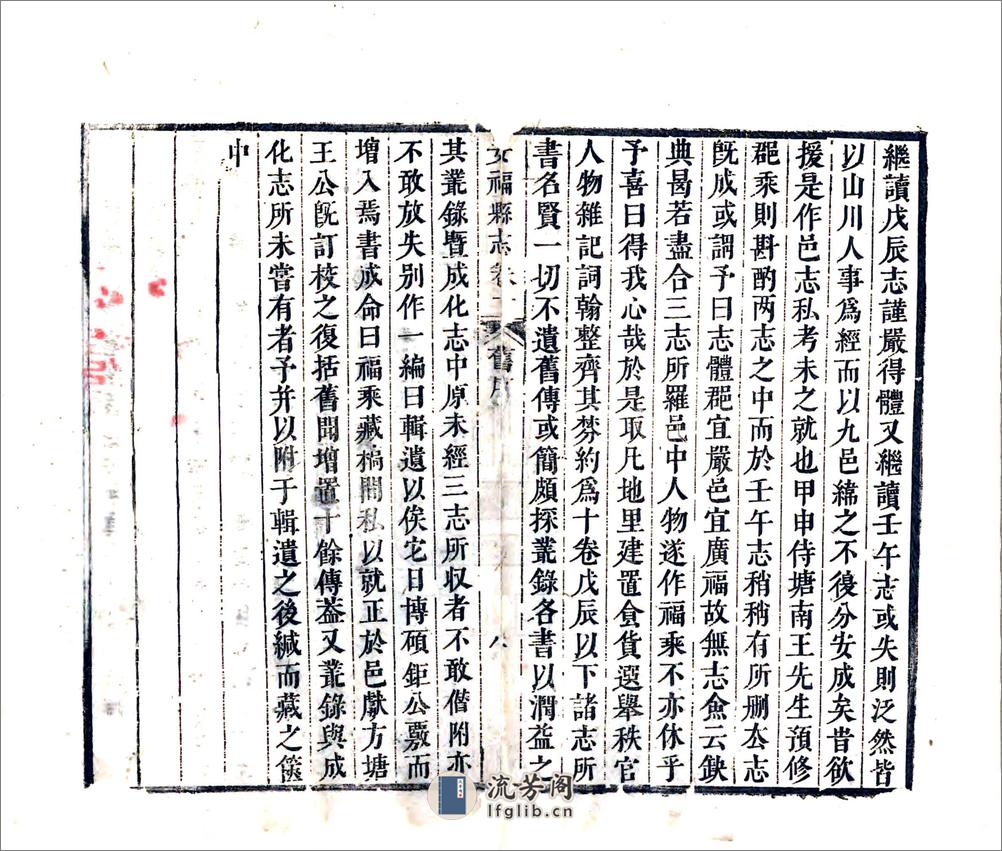 繼讀戊辰志謹嚴得體又繼讀壬午志或失則泛然皆
以山川人事爲經而以九邑緯之不復分安成矣昔欲
援是作邑志私考未之就也甲申侍塘南王先生預修
郡乘則斟酌兩志之中而於壬午志稍稍有所刪厺志
旣成或謂予曰志體郡宜嚴邑宜廣福故無志僉云缺
典曷若盡合三志所羅邑中人物遂作福乘不亦休乎
予喜曰得我心哉於是取凡地里建置食貨選舉秩官
人物雜記詞翰整齊其棼約爲十卷戊辰以下諸志所
書名賢一切不遺舊傳或簡頗探叢錄各書以潤益之
安福縣志 卷 舊序 八
其叢錄暨成化志中原未經三志所収者不敢僭附亦
不敢放失别作一編曰輯遺以俟宅日博碩鉅公覈而
增入焉書成命曰福乘藏稿間私以就正於邑獻方塘
王公旣訂校之復括舊聞增置十餘傳葢又叢錄與成
化志所未嘗有者予并以附于輯遺之後緘而藏之篋
中
流芳阁
lfglib.cn